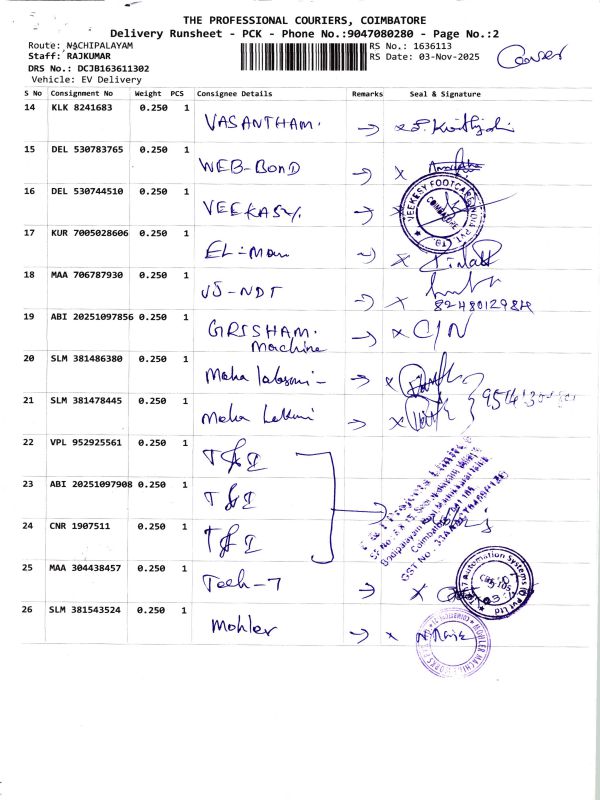 THE PROFESSIONAL COURIERS, COIMBATORE
Delivery Runsheet - PCK - Phone No.:9047080280 - Page No.:2
Route: NACHIPALAYAM
RS No.: 1636113
Staff: RAJKUMAR
RS Date: 03-Nov-2025
DRS No.: DCJB163611302
Vehicle: EV Delivery
S No Consignment No Weight PCS Consignee Details Remarks Seal & Signature
14 KLK 8241683 0.250 1 VASANTHAM.
15 DEL 530783765 0.250 1 WEB-BOND
16 DEL 530744510 0.250 1 VEEKASY.
VEEKESY FOOTCARE (INDIA) PVT LTD
COIMBATORE
17 KUR 7005028606 0.250 1
18 MAA 706787930 0.250 1 VJ-NDT
8248012984
19 ABI 20251097856 0.250 1 GRISHAM. C/N
Machine
20 SLM 381486380 0.250 1 Maha
21 SLM 381478445 0.250 1 Maha
22 VPL 952925561 0.250 1 T&I
23 ABI 20251097908 0.250 1 T&I
24 CNR 1907511 0.250 1 T&I
Coimbatore
GST No
25 MAA 304438457 0.250 1 Tech-7
Automation Systems (I) Pvt Ltd
26 SLM 381543524 0.250 1 Mohler